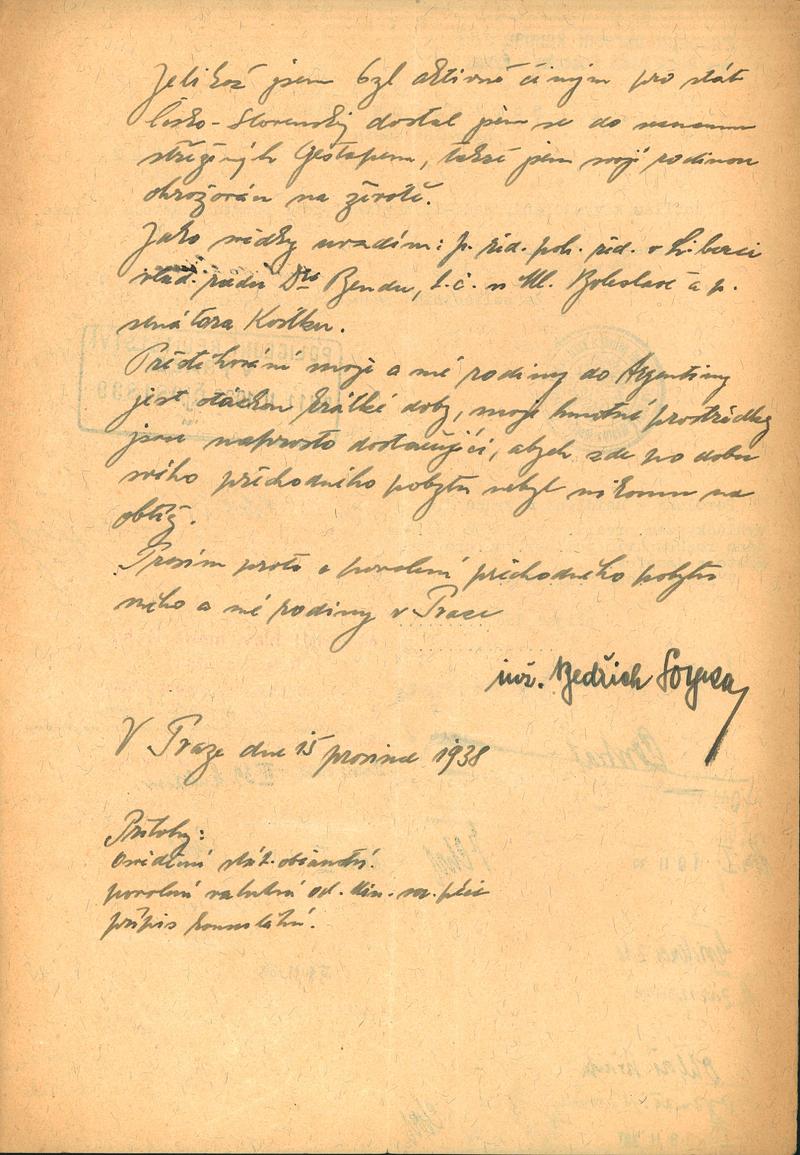 Jelikož jsem byl aktivně činným pro stát
Česko-Slovenský dostal jsem se do seznamu
stižených Gestapem, takže jsem svojí rodinou
ohrožován na životě.
Jako svědky uvádím: p. řid. pol. řed. v Liberci
vlád. radu Drs Bendu, t.č. v Ml. Boleslavi a p.
senátora Kostku.
Přestěhování moje a mé rodiny do Argentiny
jest otázkou krátké doby, moje hmotné prostředky
jsou naprosto dostačující, abych zde po dobu
svého přechodného pobytu nebyl nikomu na
obtíž.
Prosím proto o povolení přechodného pobytu
mého a mé rodiny v Praze
inž. Bedřich
V Praze dne 15 prosince 1938
Přílohy:
Osvědčení stát. občanství.
povolení valutní od. min. soc. péče
přípis konsulátu.